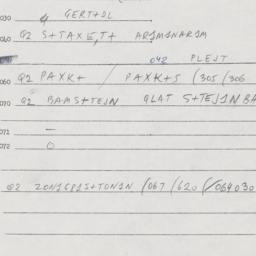 030 G GERT+DL
040 G2 S+TAXE,T+ AR1M1NAR1M
042 PLEJT
060 G2 PAXK+ / PAXK+S (305 /306
070 G2 BAMS+TEJN GLAT S+TEJ1NBA
071 —
072 O
G2 ZON1G1P1S+TON1N (067 /620 (/064030